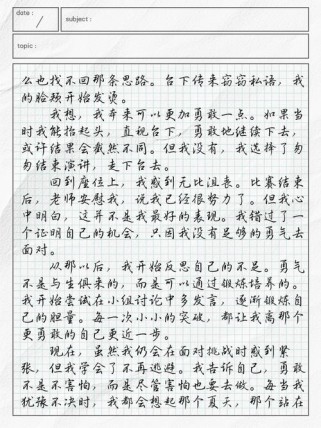 date :
subject :
topic :
么也找不回那条思路。台下传来窃窃私语，我
的脸颊开始发烫。
我想，我本来可以更加勇敢一点。如果当
时我能抬起头，直视台下，勇敢地继续下去，
或许结果会截然不同。但我没有，我选择了匆
匆结束演讲，走下台去。
回到座位上，我感到无比沮丧。比赛结束
后，老师安慰我，说我已经很努力了。但我心
中明白，这并不是我最好的表现。我错过了一
个证明自己的机会，只因我没有足够的勇气去
面对。
从那以后，我开始反思自己的不足。勇气
不是与生俱来的，而是可以通过锻炼培养的。
我开始尝试在小组讨论中多发言，逐渐锻炼自
己的胆量。每一次小小的突破，都让我离那个
更勇敢的自己更近一步。
现在，虽然我仍会在面对挑战时感到紧
张，但我学会了不再逃避。我告诉自己，勇敢
不是不害怕，而是尽管害怕也要去做。每当我
犹豫不决时，我都会想起那个夏天，那个站在